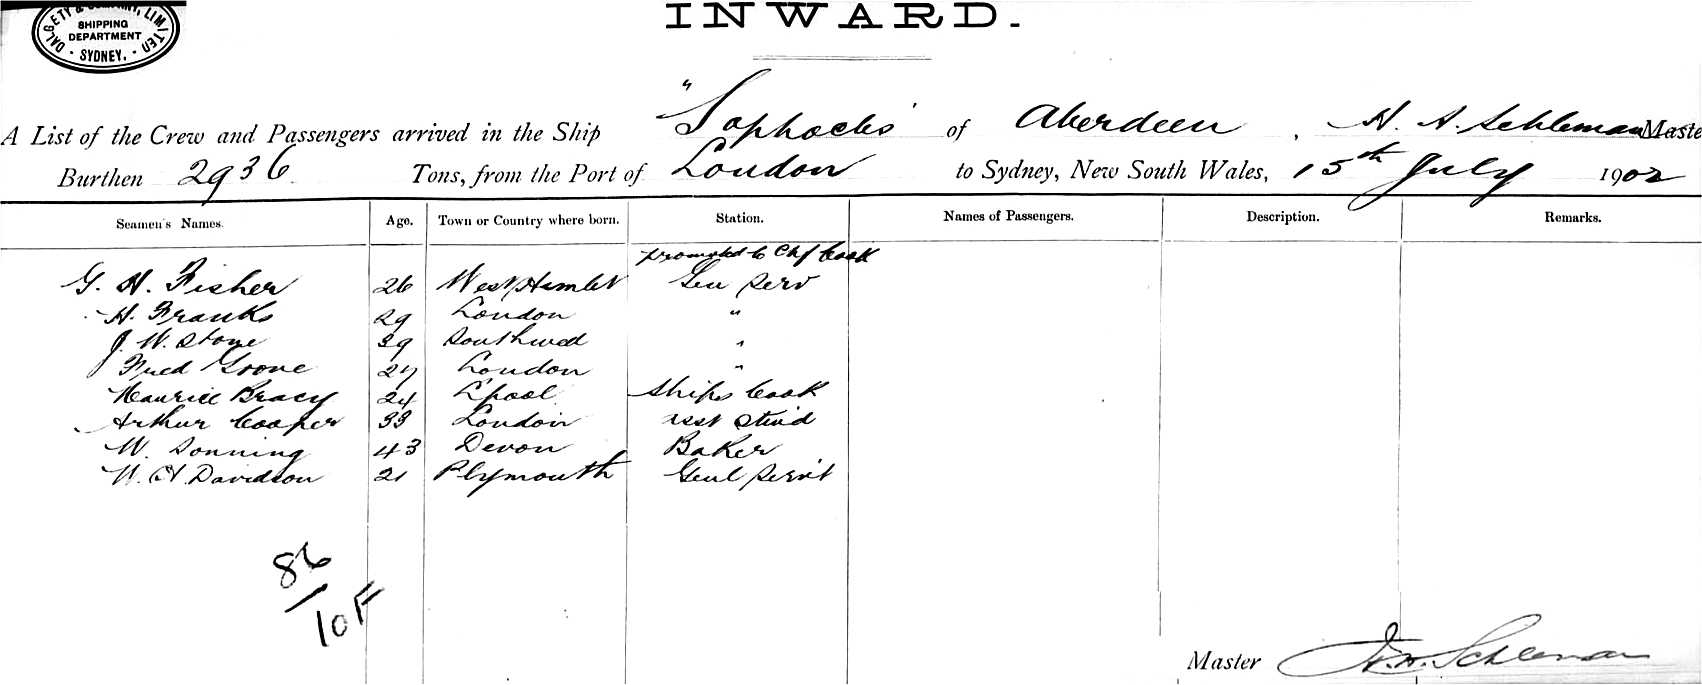 DALGETY & COMPANY, LIMITED
SHIPPING
DEPARTMENT
SYDNEY.
INWARD.
A List of the Crew and Passengers arrived in the Ship "Sophocles" of Aberdeen, H. A. Schleman Master
Burthen 2936 Tons, from the Port of London to Sydney, New South Wales, 15th July 1902
Seamen's Names. Age. Town or Country where born. Station. Names of Passengers. Description. Remarks.
promoted to Chf Cook
G. H. Fisher 26 West Hamlet Gen Serv
H. Franks 29 London "
J. W. Stone 39 Southwed "
Fred Groove 27 London "
Maurice Bracy 24 L'pool Ships Cook
Arthur Cooper 33 London asst Stwd
W. Sonning 43 Devon Baker
W. H. Davidson 21 Plymouth Genl Servt
86
/10F
Master H. A. Schleman